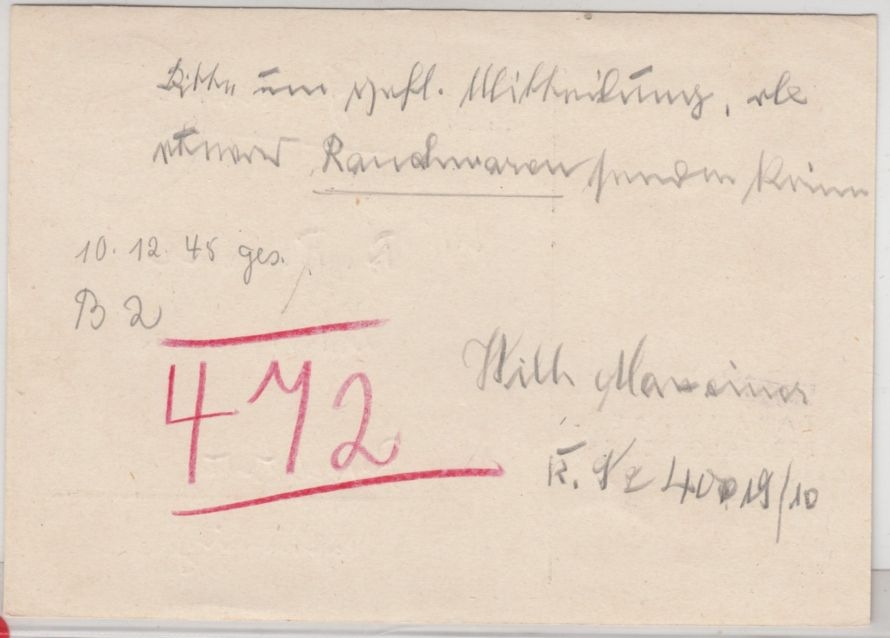 Bitte um gefl. Mitteilung, ob
Rauchwaren senden kann
10. 12. 45 ges.
B 2
472
Wilh
K. Nr 40019/10